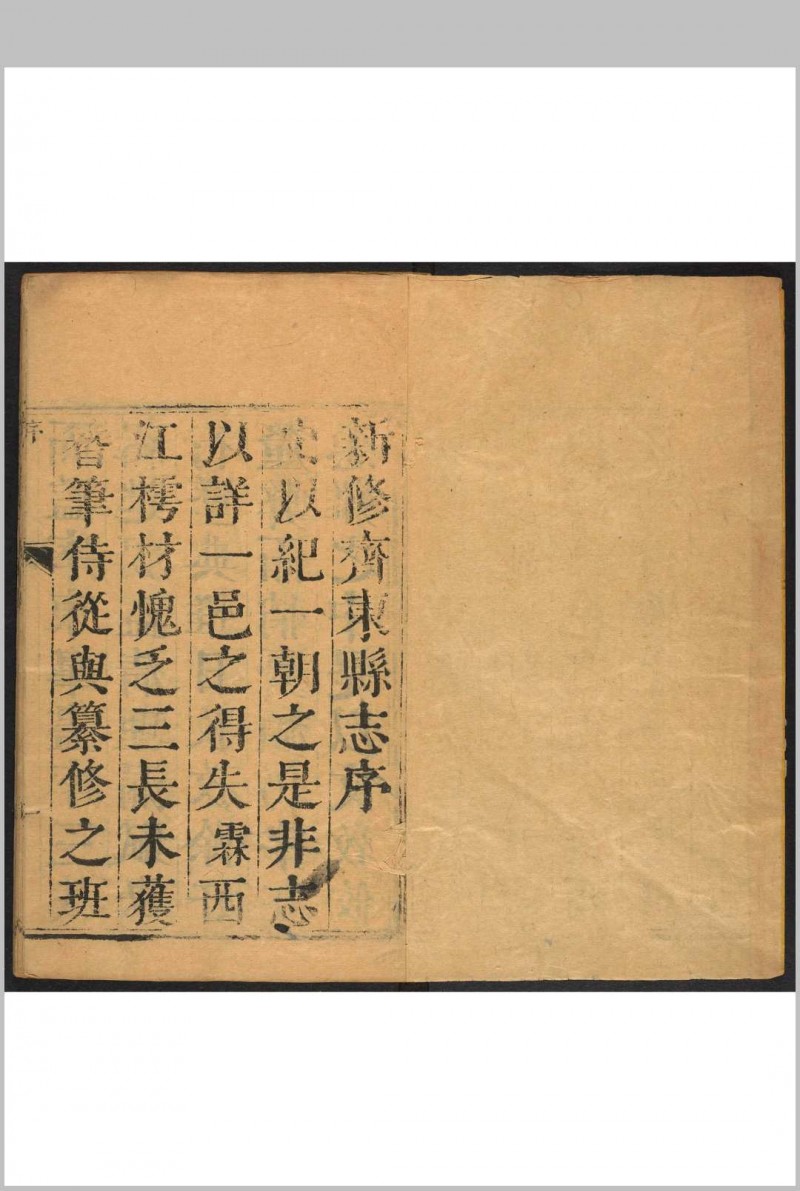 新修齊東縣志序
史以紀一朝之是非志
以詳一邑之得失霖西
江樗材愧乏三長未獲
簪筆侍從與纂修之班
序